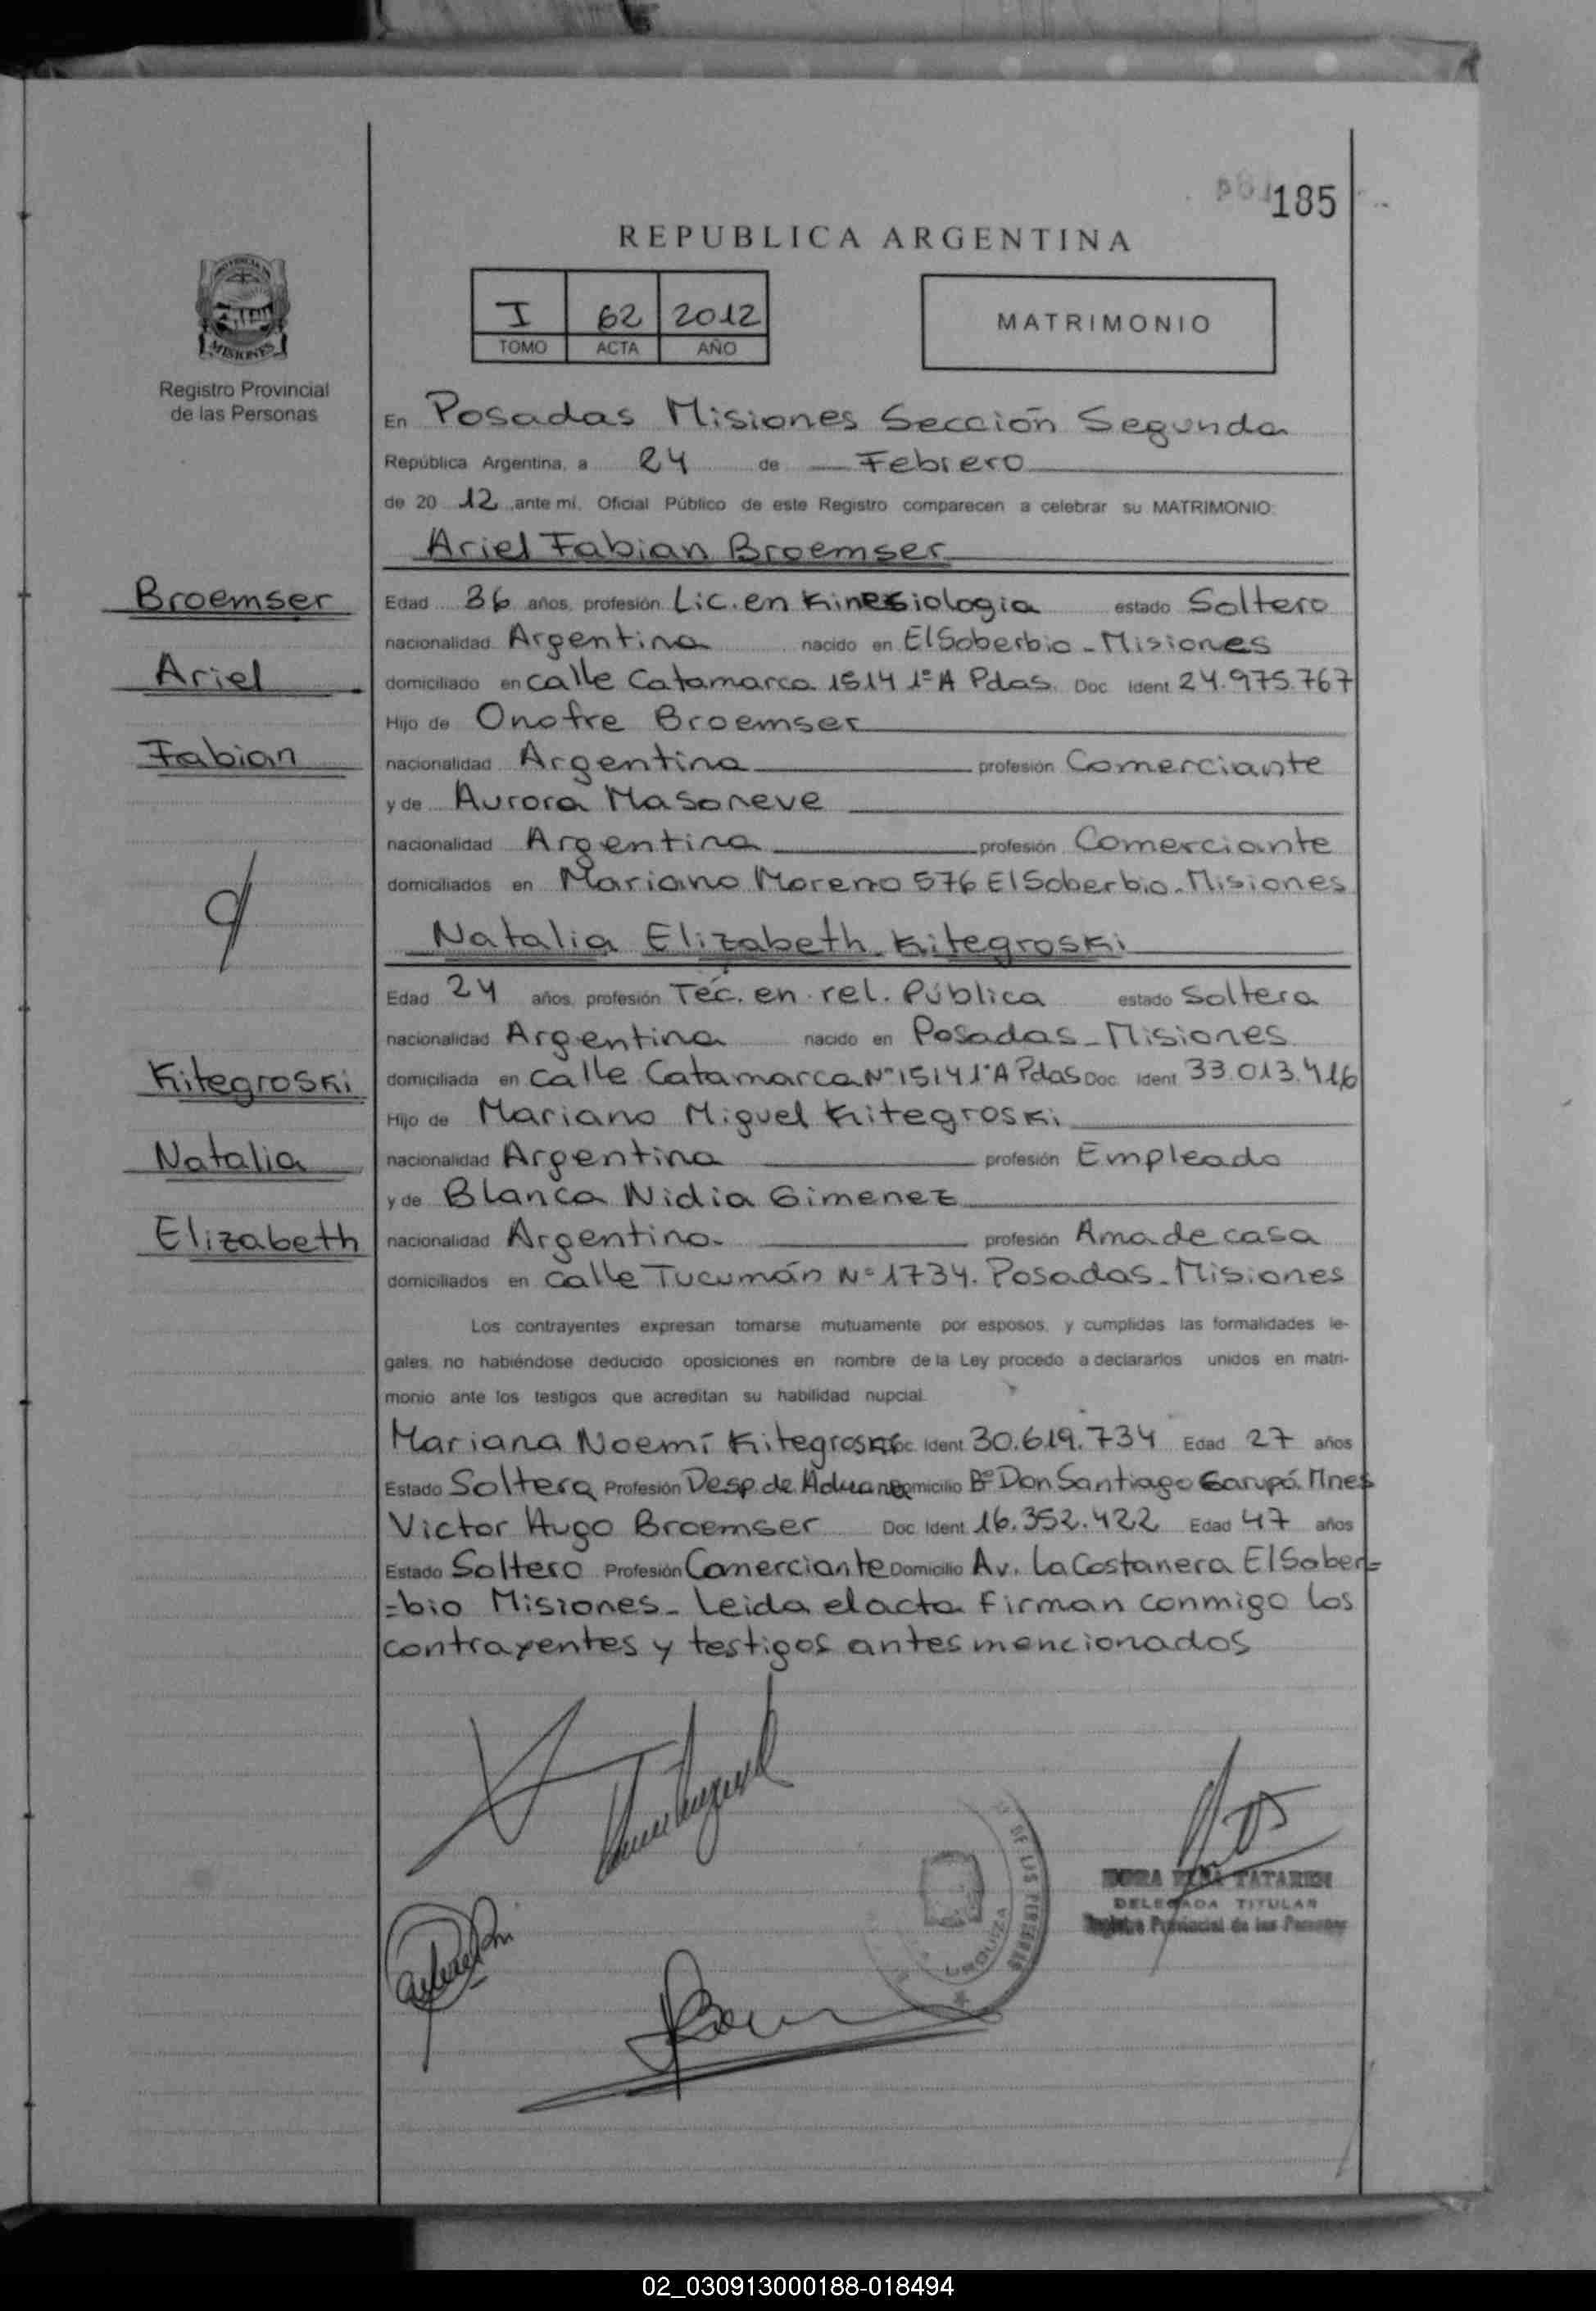 185
REPUBLICA ARGENTINA
I 62 2012
TOMO ACTA AÑO
MATRIMONIO
MISIONES
Registro Provincial
de las Personas
En Posadas Misiones Sección Segunda
República Argentina, a 24 de Febrero
de 20 12 ,ante mí, Oficial Público de este Registro comparecen a celebrar su MATRIMONIO:
Ariel Fabian Broemser
Broemser
Edad 36 años, profesión Lic. en Kinesiologia estado Soltero
nacionalidad Argentina nacido en El Soberbio - Misiones
Ariel
domiciliado en calle Catamarca 1514 1º A Pdas. Doc. Ident. 24.975.767
Hijo de Onofre Broemser
Fabian
nacionalidad Argentina profesión Comerciante
y de Aurora Masoneve
nacionalidad Argentina profesión Comerciante
domiciliados en Mariano Moreno 576 El Soberbio - Misiones
Natalia Elizabeth Kitegroski
Edad 24 años, profesión Téc. en rel. Pública estado Soltera
nacionalidad Argentina nacido en Posadas - Misiones
Kitegroski
domiciliada en calle Catamarca Nº 1514 1º A Pdas Doc. Ident. 33.013.416
Hijo de Mariano Miguel Kitegroski
Natalia
nacionalidad Argentina profesión Empleado
y de Blanca Nidia Gimenez
Elizabeth
nacionalidad Argentina profesión Ama de casa
domiciliados en calle Tucumán Nº 1734. Posadas - Misiones
Los contrayentes expresan tomarse mutuamente por esposos, y cumplidas las formalidades le-
gales, no habiéndose deducido oposiciones en nombre de la Ley procedo a declararlos unidos en matri-
monio ante los testigos que acreditan su habilidad nupcial.
Mariana Noemí Kitegroski Doc. Ident. 30.619.734 Edad 27 años
Estado Soltera Profesión Desp. de Aduana Domicilio Bº Don Santiago Garupá. Mnes
Victor Hugo Broemser Doc. Ident. 16.352.422 Edad 47 años
Estado Soltero Profesión Comerciante Domicilio Av. La Costanera El Sober=
=bio Misiones - Leida el acta firman conmigo los
contrayentes y testigos antes mencionados
DE LAS PERSONAS
URQUIZA
TATAREN
DELEGADA TITULAR
Registro Provincial de las Personas
02_030913000188-018494